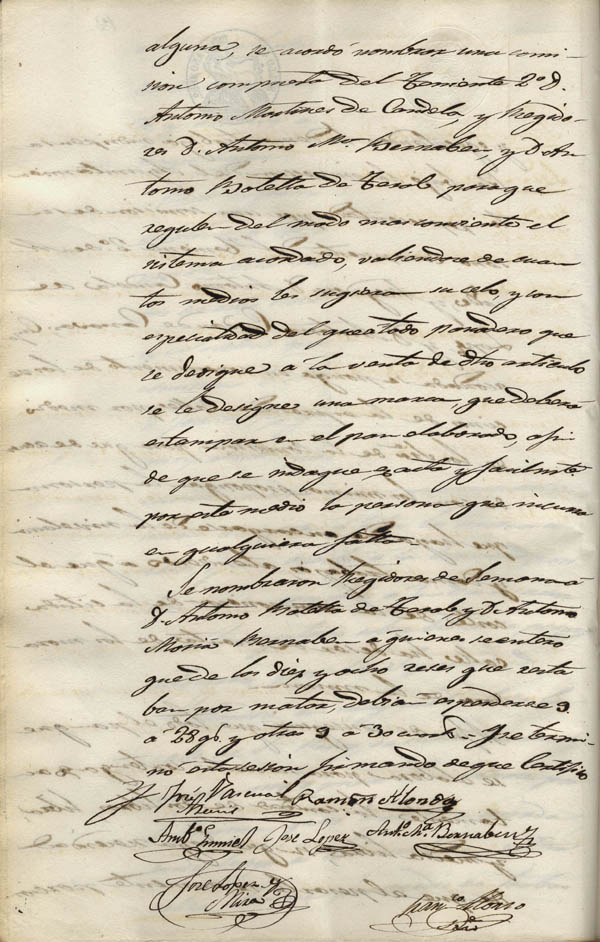 alguna, se acordó nombrar una comi-
sion compuesta del Teniente 2º D.
Antonio Martinez de Candela, y Regido-
res D. Antonio Mª Bernabeu, y D. An-
tonio Botella de Terol para que
regulen del modo mas conveniente el
sistema acordado, valiendose de cuan-
tos medios les sugiera su celo, y con
especialidad del que todo panadero que
se dedique á la venta de dho articulo
se le designe una marca, que deberá
estampar en el pan elaborado, afi
de que se indague exacta y facilmte
por este medio la persona que incurra
en qualquiera falta.
Se nombraron Regidores de Semana á
D. Antonio Botella de Terol, y D. Antonio
Maria Bernabeu á quienes se entero
que de los diez y ocho reses que resta
ban por matar, debian espenderse 9
á 28 qs. y otras 9 á 30 cuartos. Y se termi-
nó esta sesion firmando de que Certifico
José Pascual Ramon Alonso
Antº José Lopez Antº Mª Bernabeu
José Lopez y
Mira Franco Alonso